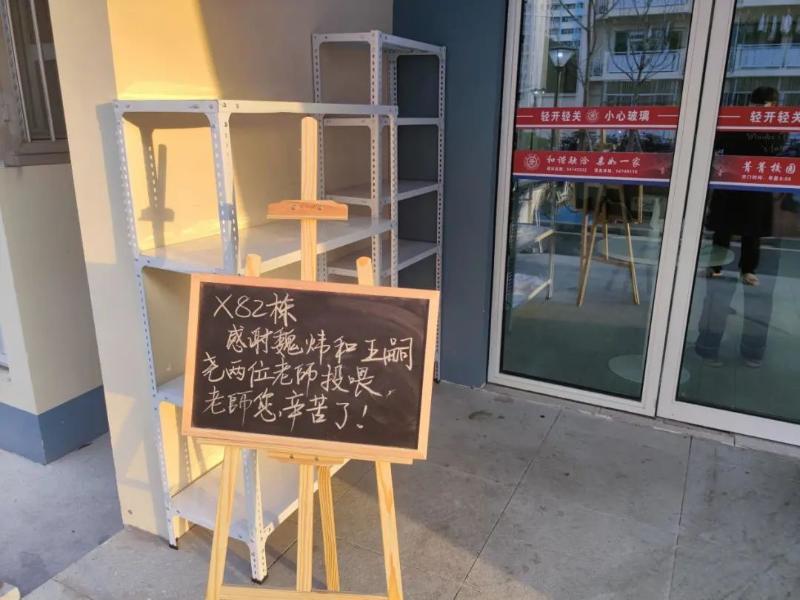 X82栋
感谢魏炜和王嗣
尧两位老師投喂，
老師您辛苦了！
轻开轻关 小心玻璃
和谐融洽 亲如一家
轻开轻关
菁菁校园